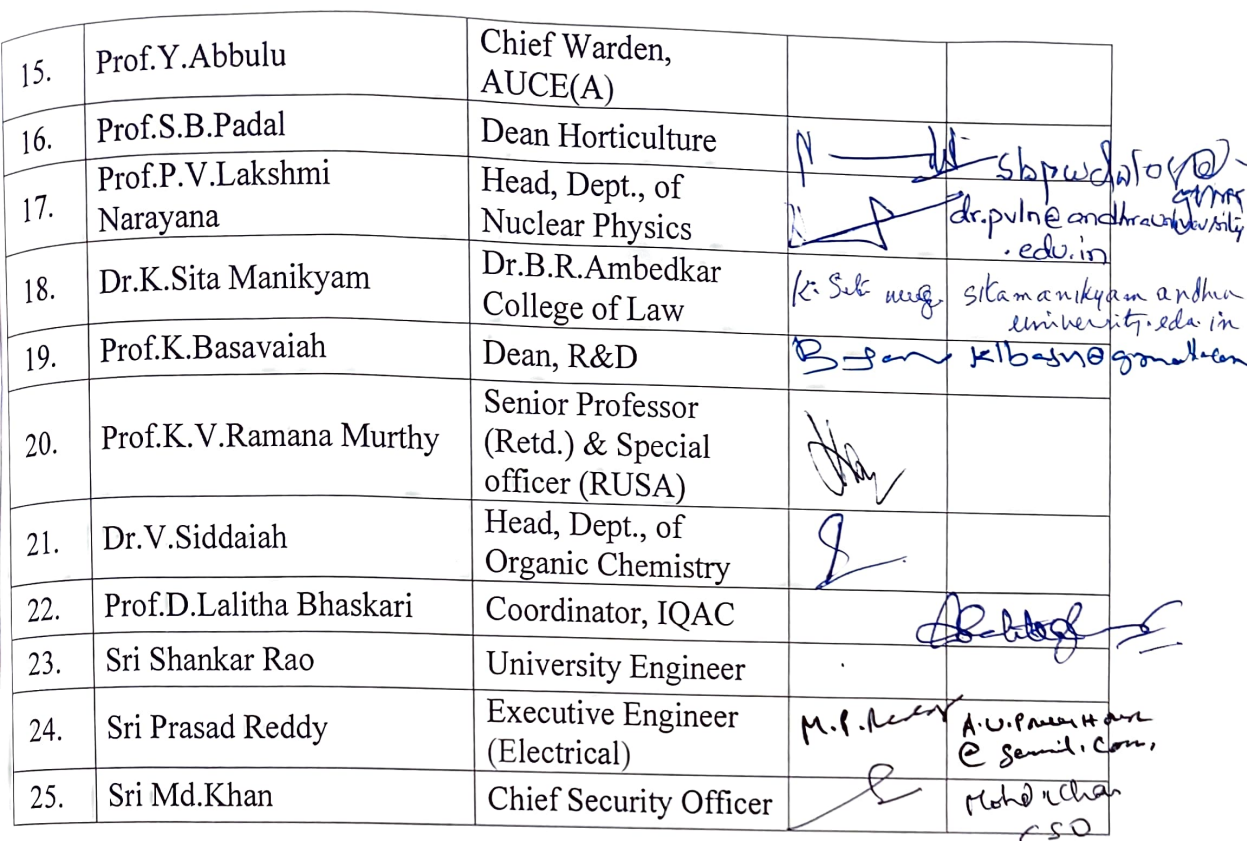 15. Prof.Y.Abbulu Chief Warden,
AUCE(A)
16. Prof.S.B.Padal Dean Horticulture
17. Prof.P.V.Lakshmi Head, Dept., of
Narayana Nuclear Physics dr.pvln@andhrauniversity
.edu.in
18. Dr.K.Sita Manikyam Dr.B.R.Ambedkar
College of Law K. Sita sitamanikyam andhra
university.edu.in
19. Prof.K.Basavaiah Dean, R&D
20. Prof.K.V.Ramana Murthy Senior Professor
(Retd.) & Special
officer (RUSA)
21. Dr.V.Siddaiah Head, Dept., of
Organic Chemistry
22. Prof.D.Lalitha Bhaskari Coordinator, IQAC
23. Sri Shankar Rao University Engineer
24. Sri Prasad Reddy Executive Engineer M.P.Reddy A.U.
(Electrical)
25. Sri Md.Khan Chief Security Officer Mohd Khan
CSO